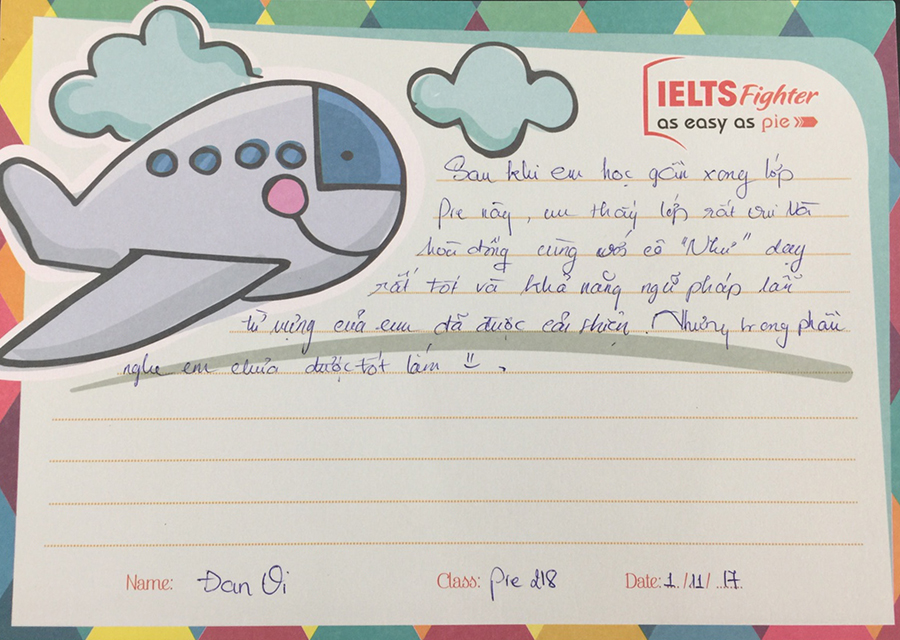 IELTS Fighter
as easy as pie
Sau khi em học gần xong lớp
Pre này, em thấy lớp rất vui và
hoà đồng cùng với cô "Như" dạy
rất tốt và khả năng ngữ pháp lẫn
từ vựng của em đã được cải thiện. Nhưng trong phần
nghe em chưa được tốt lắm
Name: Đan Vi Class: Pre 218 Date: 1./11/..17.